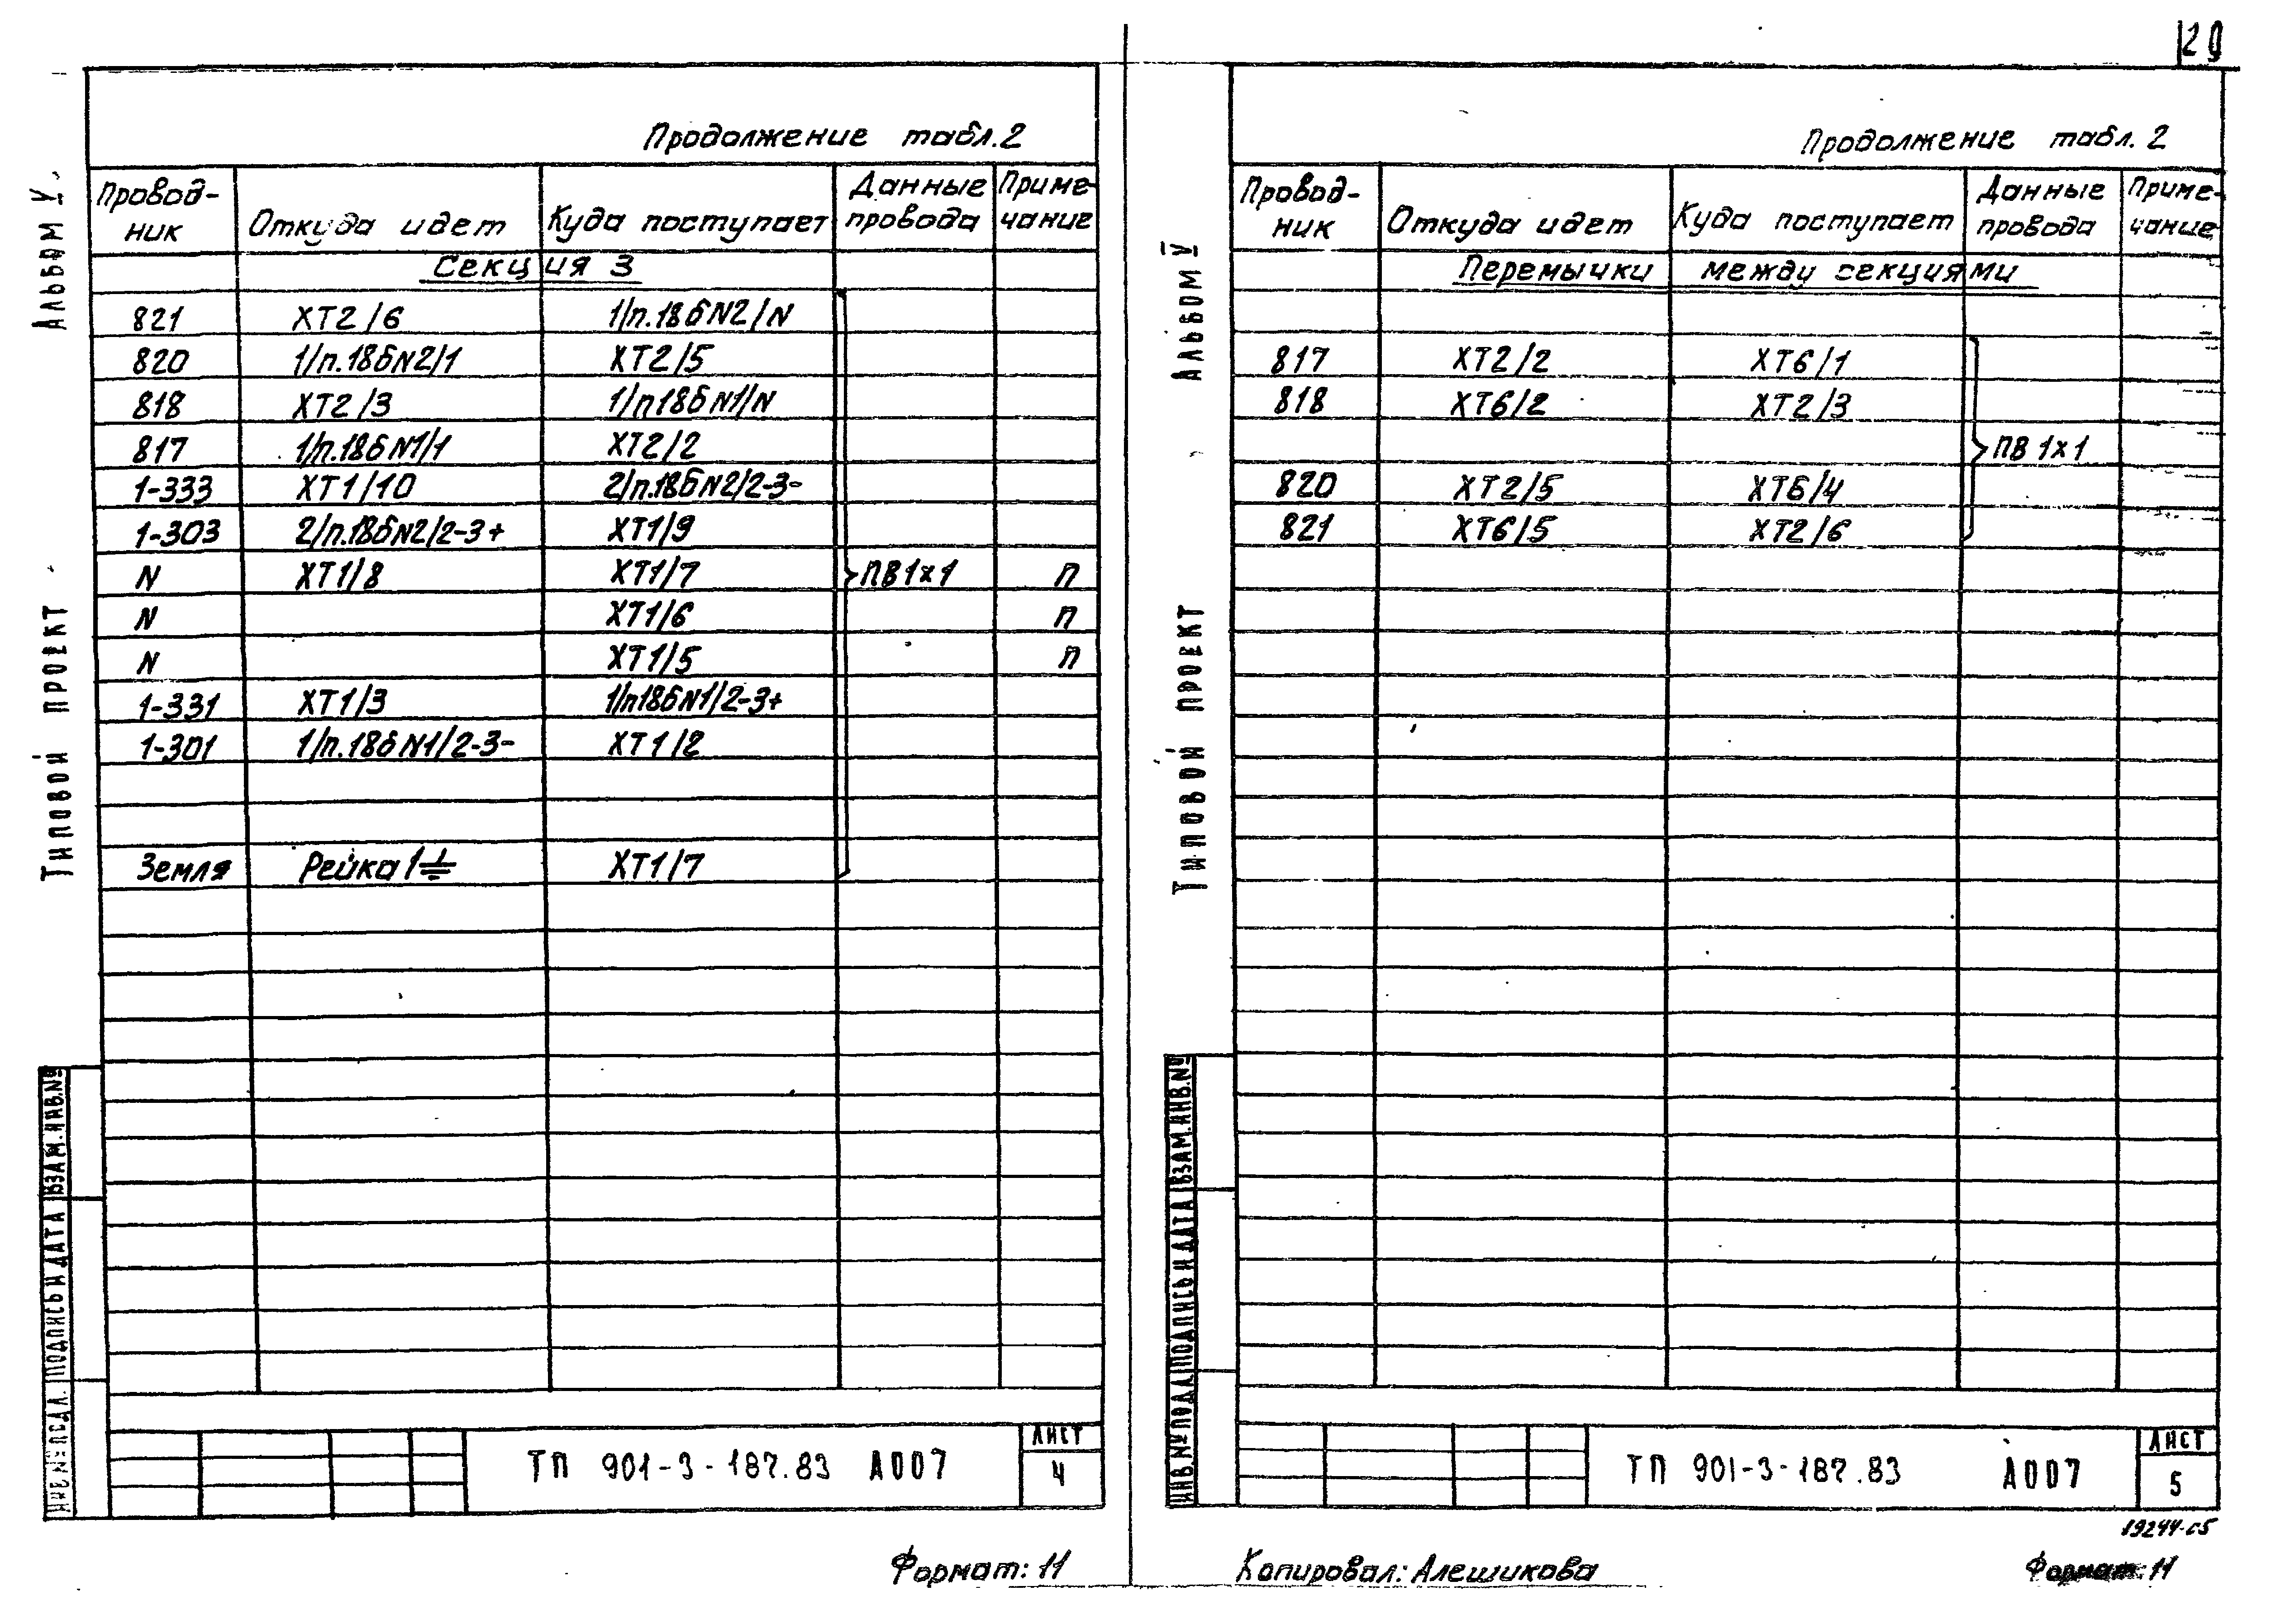 20
Продолжение табл. 2
Провод-ник Откуда идет Куда поступает Данные провода Приме-чание
Секция 3
821 ХТ2/6 1/п.18бN2/N
820 1/п.18бN2/1 ХТ2/5
818 ХТ2/3 1/п18бN1/N
817 1/п.18бN1/1 ХТ2/2
1-333 ХТ1/10 2/п.18бN2/2-3-
1-303 2/п.18бN2/2-3+ ХТ1/9
N ХТ1/8 ХТ1/7 ПВ1х1 п
N ХТ1/6 п
N ХТ1/5 п
1-331 ХТ1/3 1/п18бN1/2-3+
1-301 1/п.18бN1/2-3- ХТ1/2
Земля Рейка 1⏚ ХТ1/7
Альбом V
Типовой проект
ИНВ.№ ПОДЛ. ПОДПИСЬ И ДАТА ВЗАМ.ИНВ.№
ТП 901-3-187.83 А007
ЛИСТ
4
Формат: 11
Продолжение табл. 2
Провод-ник Откуда идет Куда поступает Данные провода Приме-чание
Перемычки между секциями
817 ХТ2/2 ХТ6/1
818 ХТ6/2 ХТ2/3
ПВ 1х1
820 ХТ2/5 ХТ6/4
821 ХТ6/5 ХТ2/6
Альбом V
Типовой проект
ИНВ.№ ПОДЛ. ПОДПИСЬ И ДАТА ВЗАМ.ИНВ.№
ТП 901-3-187.83 А007
ЛИСТ
5
19244-05
Копировал: Алешикова
Формат: 11